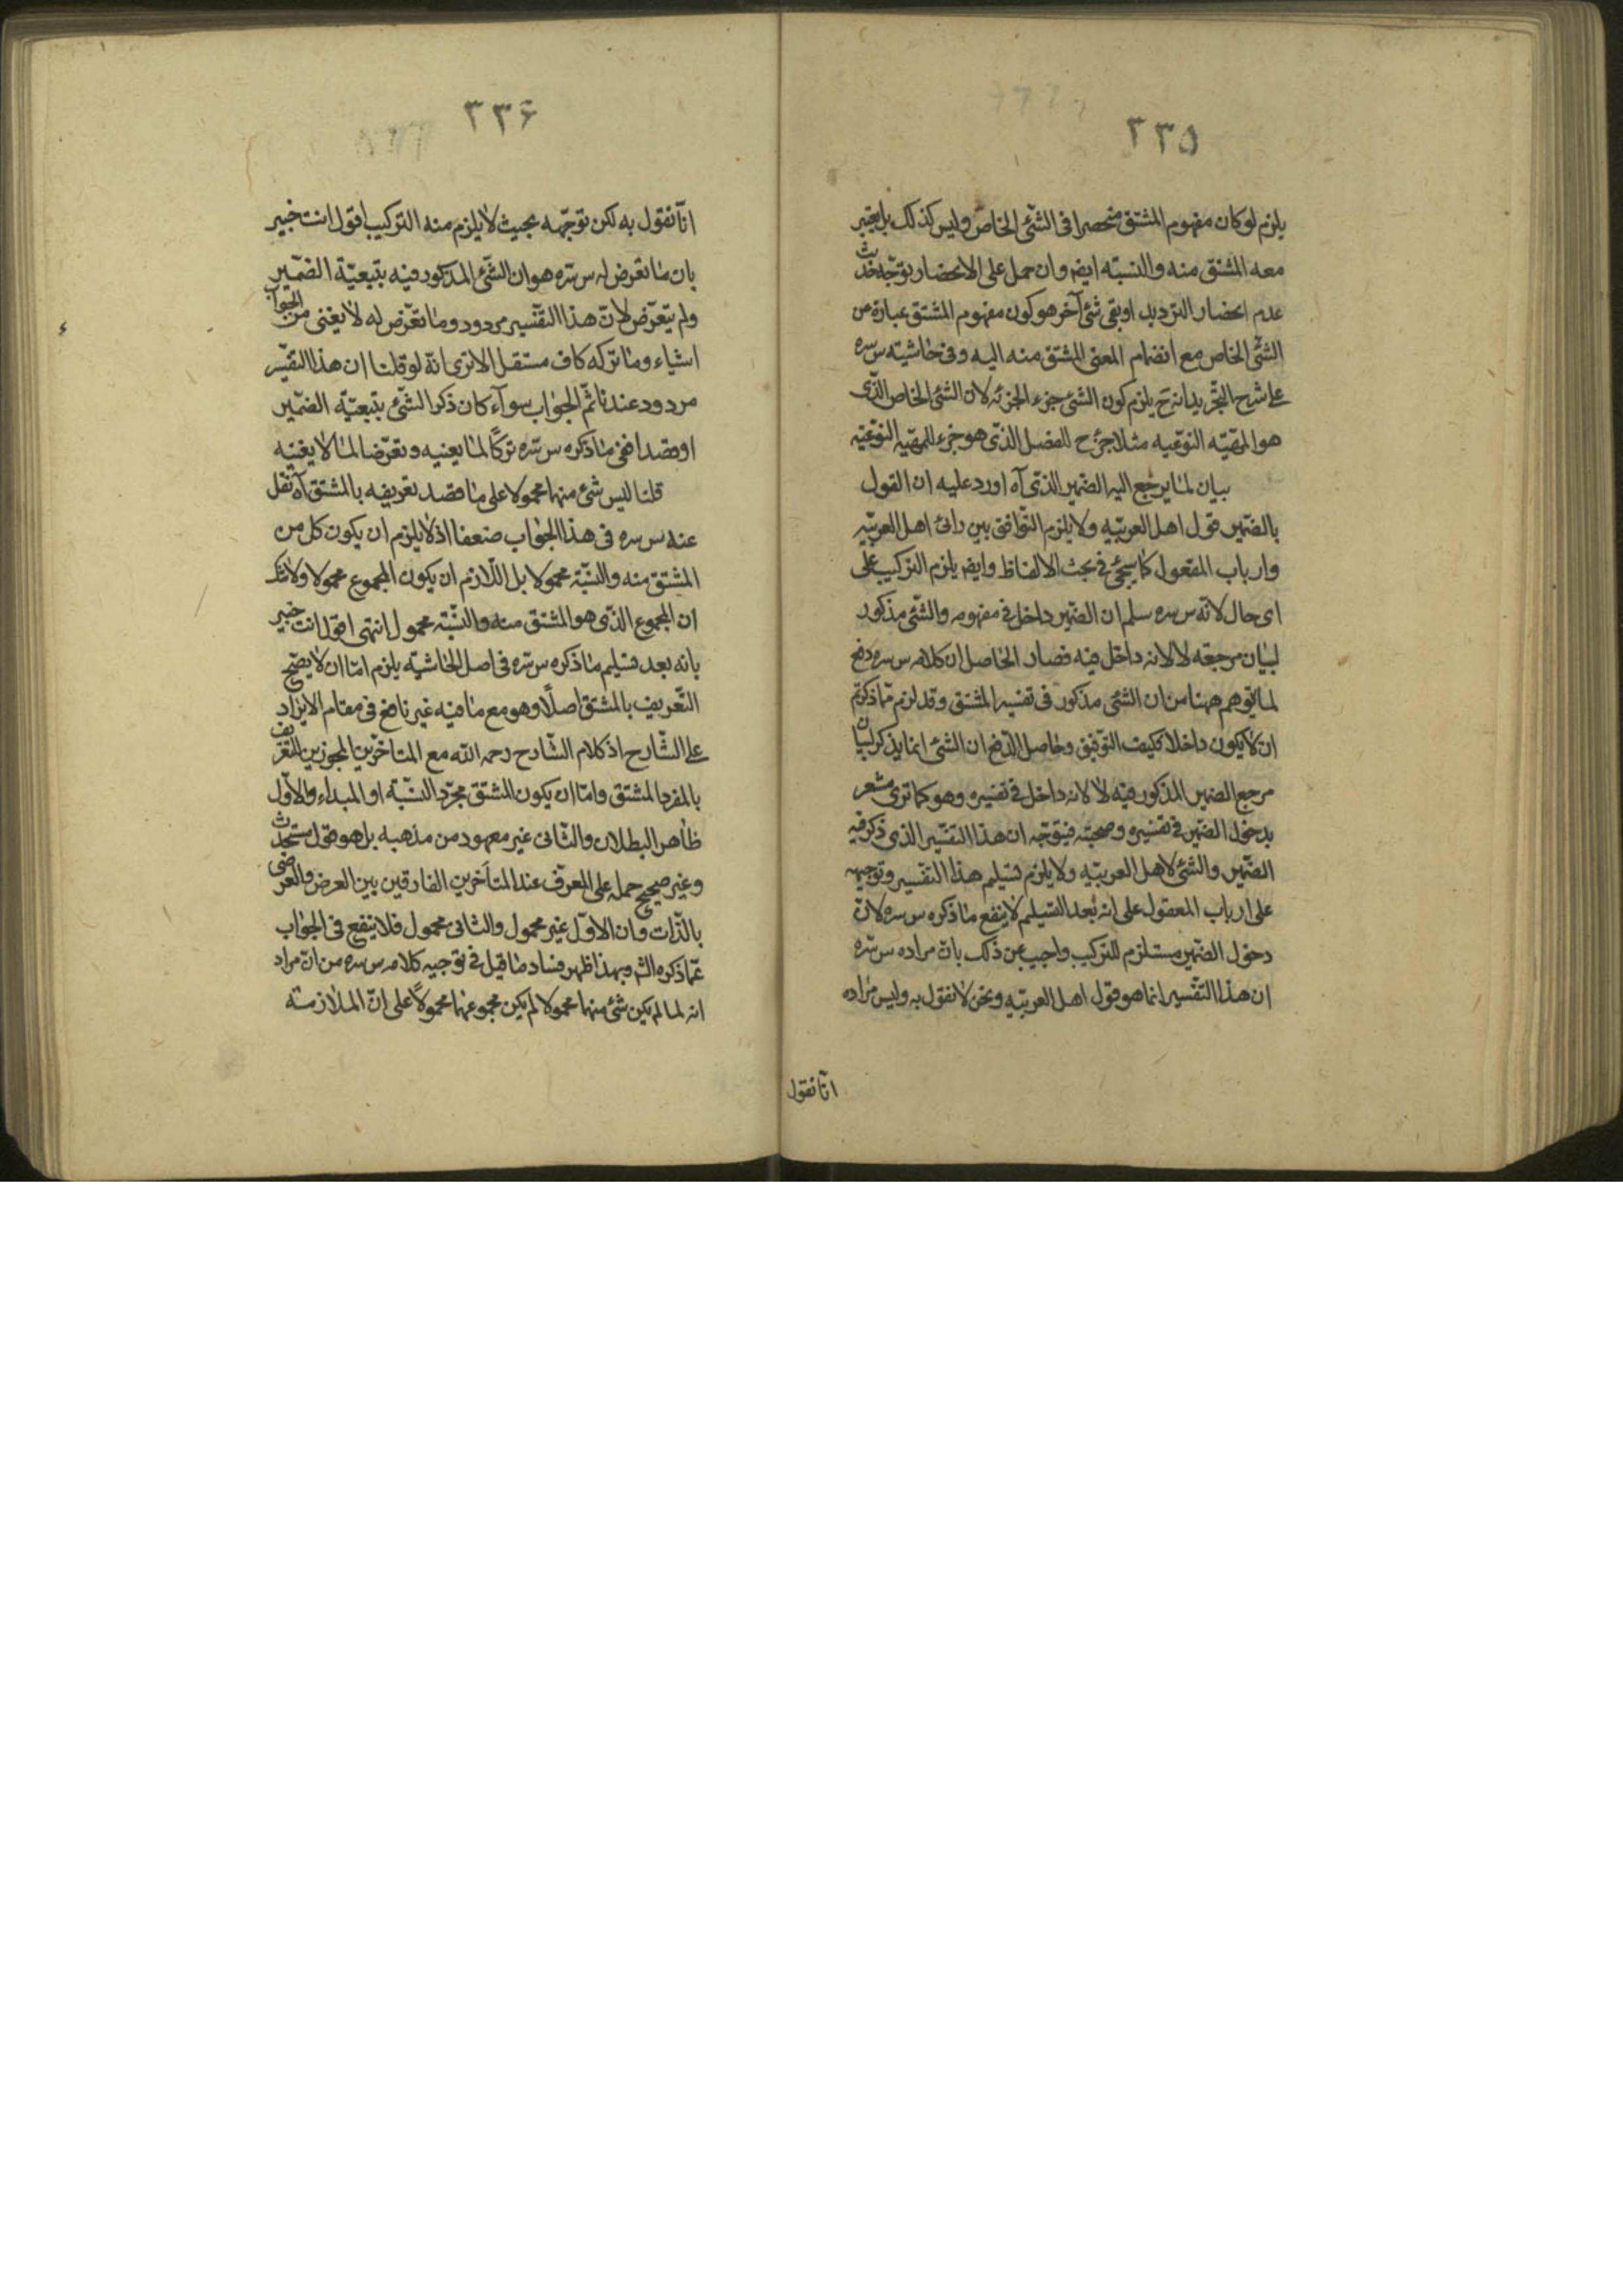 ٣٣٥
يلزم لو كان مفهوم المشتق منحصرا فى الشئ الخاص وليس كذلك بل يعتبر
معه المشتق منه والنسبته ايضا وان حمل على الانحصار يوتجه حديث
عدم انحصار الترديد او بقى شئ آخر هو كون مفهوم المشتق عبارة من
الشئ الخاص مع انضمام المعنى المشتق منه اليه وفى حاشيته س سره
على شرح التجريد انه ح يلزم كون الشئ جزء الجزئه لان الشئ الخاص الذى
هو المهيته النوعيه مثلا جزء ح للفصل الذى هو جزء للمهيه النوعيه
بيان لما يرجع اليه الضمير الذى آه اورد عليه ان القول
بالضمير قول اهل العربيه ولا يلزم التوافق بين رائ اهل العربيه
وارباب المعقول كما سيجئ فى بحث الالفاظ وايضا يلزم التركيب على
اى حال لانه س سره سلم ان الضمير داخل فى مفهومه والشئ مذكور
لبيان مرجعه لا لانه داخل فيه فصار الحاصل ان كلامه س سره دفع
لما يتوهم ههنا من ان الشئ مذكور فى تفسير المشتق وقد لزم مما ذكرتم
ان لا يكون داخلا فكيف التوفيق وحاصل الدفع ان الشئ انما يذكر لبيان
مرجع الضمير المذكور فيه لا لانه داخل فى تفسيره وهو كما ترى مشعر
بدخول الضمير فى تفسيره وصحته فيتوجه ان هذا التفسير الذى ذكر فيه
الضمير والشئ لاهل العربيه ولا يلزم تسليم هذا التفسير وتوجيهه
على ارباب المعقول على انه بعد التسليم لا ينفع ما ذكره س سره لان
دخول الضمير مستلزم للتركيب واجيب عن ذلك بان مراده س سره
ان هذا التفسير انما هو قول اهل العربيه ونحن لا نقول به وليس مراده
انا نقول
٣٣۶
انا نقول به لكن توجهه بحيث لا يلزم منه التركيب اقول انت خبير
بان ما تعرض له س سره هو ان الشئ المذكور فيه بتبعية الضمير
ولم يتعرض لان هذا التفسير مردود وما تعرض له لا يغنى من الجواب
اشياء وما تركه كاف مستقل الا ترى انه لو قلنا ان هذا التفسير
مردود عندنا ثم الجواب سوآء كان ذكر الشئ بتبعية الضمير
او قصدا فنفى ما ذكره س سره تركا لما يعنيه وتعرضا لما لا يغنيه
قلنا ليس شئ منها محمولا على ما قصد تعريفه بالمشتق آه نقل
عنه س سره فى هذا الجواب ضعفا اذ لا يلزم ان يكون كل من
المشتق منه والنسبة محمولا بل اللازم ان يكون المجموع محمولا ولا شك
ان المجموع الذى هو المشتق منه والنسبة محمول انتهى اقول انت خبير
بانه بعد تسليم ما ذكره س سره فى اصل الحاشيه يلزم اما ان لا يصح
التعريف بالمشتق اصلا وهو مع ما فيه غير نافع فى مقام الايراد
على الشارح اذ كلام الشارح رحمه الله مع المتاخرين المجوزين للتعريف
بالمفرد المشتق واما ان يكون المشتق مجرد النسبة او المبداء والاول
ظاهر البطلان والثانى غير معهود من مذهبه بل هو قول مستحدث
وغير صحيح حمله على المعرف عند المتأخرين الفارقين بين العرض والعرضى
بالذات وان الاول غير محمول والثانى محمول فلا ينفع فى الجواب
عما ذكره الش وبهذا ظهر فساد ما قيل فى توجيه كلامه س سره من ان مراده
انه لما لم يكن شئ منها محمولا لم يكن مجموعها محمولا على ان الملازمته